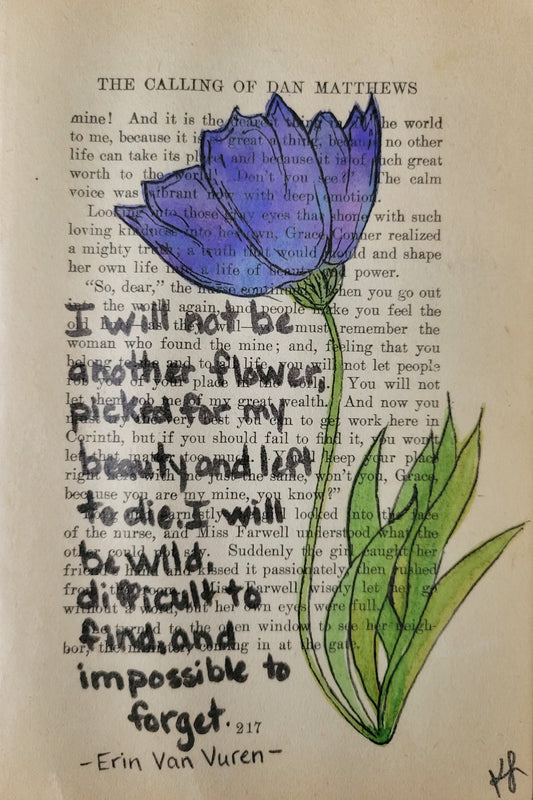 THE CALLING OF DAN MATTHEWS
mine! And it is the dearest thing in the world
to me, because it is great a thing, because no other
life can take its place and because it is of such great
worth to the world! Don't you see?" The calm
voice was vibrant now with deep emotion.
Looking into those gray eyes that shone with such
loving kindness into her own, Grace Conner realized
a mighty truth; a truth that would mould and shape
her own life into a life of beauty and power.
"So, dear," the nurse continued, when you go out
into the world again, and people make you feel the
old they will— must remember the
woman who found the mine; and, feeling that you
belong to the and to all life, you will not let people
of your place in the You will not
let them rob me of my great wealth. And now you
must try the very best you can to get work here in
Corinth, but if you should fail to find it, you won't
let that matter too much. You'll keep your place
right with me just the same, won't you, Grace,
because you are my mine, you know?"
earnestly girl looked into the face
of the nurse, and Miss Farwell understood what the
other could not say. Suddenly the girl caught her
friend's hand and kissed it passionately, then rushed
from the Miss Farwell wisely let her go
without a word, but her own eyes were full.
turned to the open window to see her neigh-
bor, the coming in at the gate.
217
I will not be
another flower,
picked for my
beauty and left
to die. I will
be wild,
difficult to
find, and
impossible to
forget.
-Erin Van Vuren-